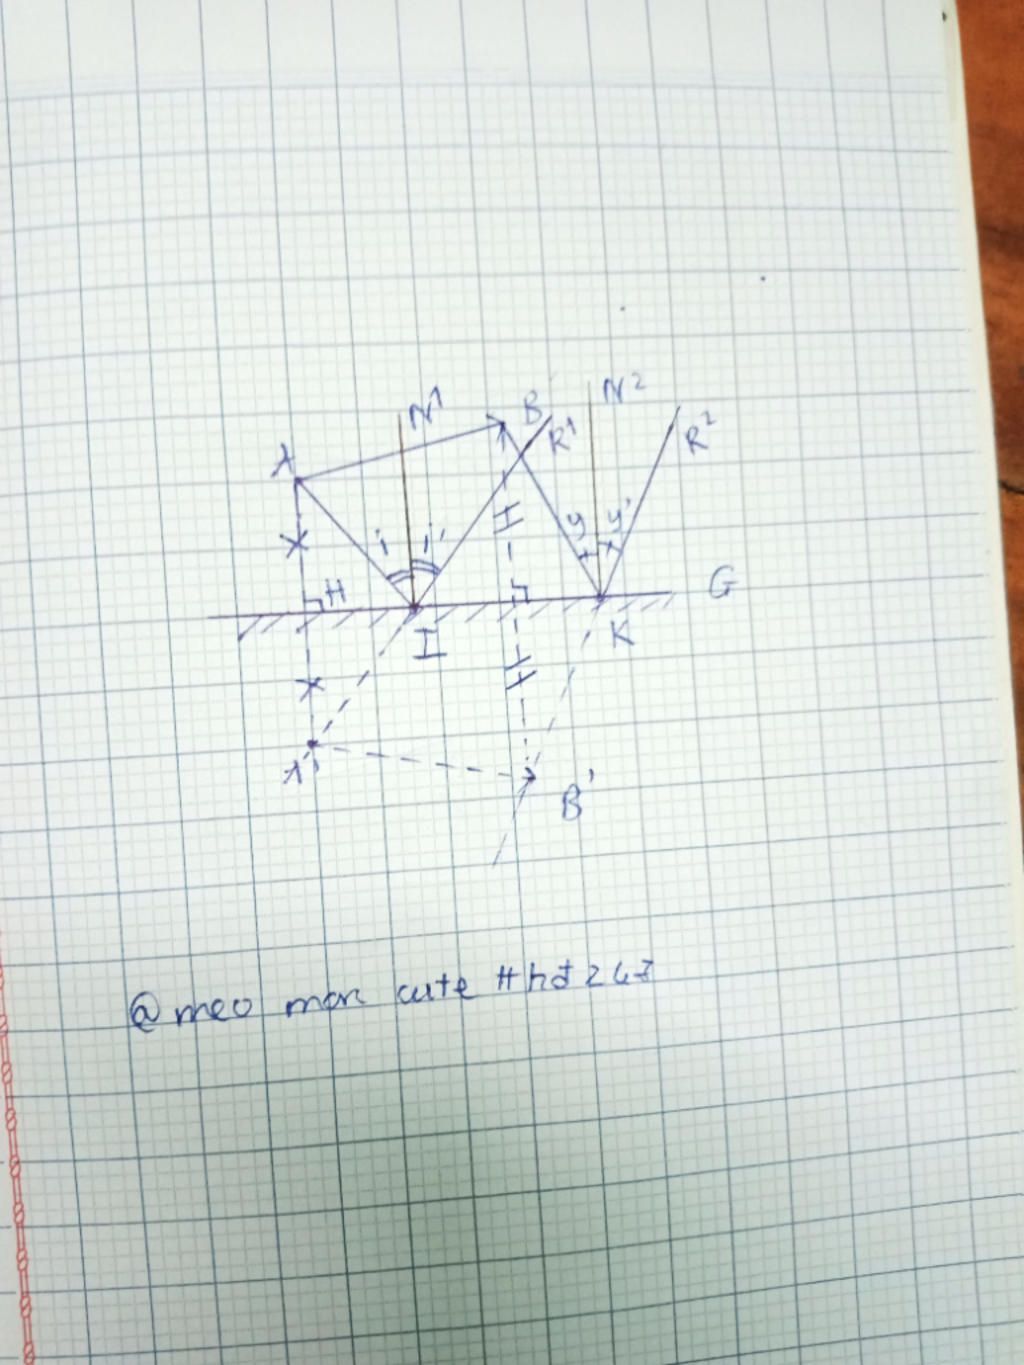 N1
N2
B
R1
R2
A
i
i'
y
y'
H
G
I
K
A'
B'
@meo mon cute #hdz